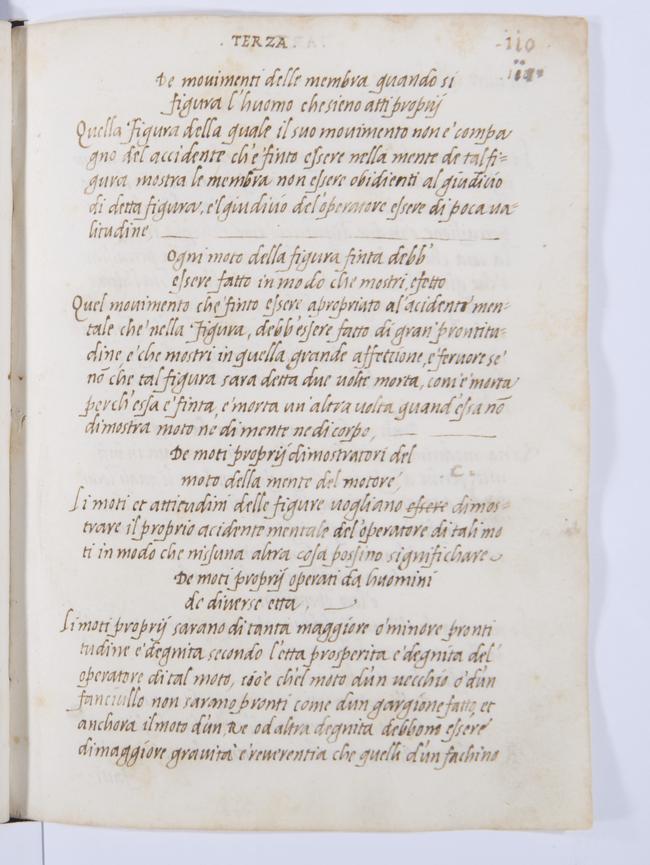 . TERZA .
110
De mouimenti delle membra quando si
figura l'huomo che sieno atti proprij
Quella figura della quale il suo mouimento non e compa
gno del accidente ch'e finto essere nella mente de tal fi-
gura mostra le membra non essere obidienti al giuditio
di detta figura, e'l giuditio del'operatore essere di poca ua-
litudine
Ogni moto della figura finta debb'
essere fatto in modo che mostri efetto
Quel mouimento che finto essere apropriato al'acidente men-
tale che nella figura, debb'essere fatto di gran prontitu-
dine, e che mostri in quella grande affettione, e feruore se
nō che tal figura sara detta due uolte morta, com'e morta
perch'essa e finta, e morta un'altra uolta quand'essa nō
dimostra moto ne di mente ne di corpo,
De moti proprij dimostratori del
moto della mente del motore,
Li moti et attitudini delle figure uogliano essere dimos-
trare il proprio acidente mentale del'operatore di tali mo
ti in modo che nissuna altra cosa possino significhare
De moti proprij operati da huomini
de diuerse etta,
Li moti proprij sarano di tanta maggiore o minore pronti
tudine e degnita secondo l'etta prosperita e degnita del
operatore di tal moto, cioe che'l moto d'un uecchio o d'un
fanciullo non sarano pronti come d'un gargione fatto, et
anchora il moto d'un Re od altra degnita debbono essere
di maggiore grauita e reuerentia che quelli d'un fachino